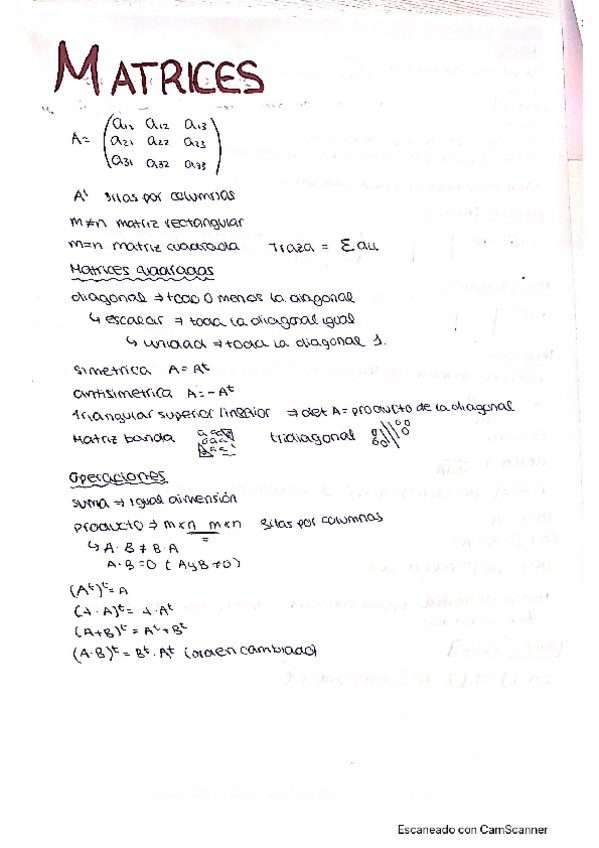 MATRICES
A= (a11 a12 a13
a21 a22 a23
a31 a32 a33)
At filas por columnas
m≠n matriz rectangular
m=n matriz cuadrada Traza = Σaii
Matrices cuadradas
diagonal ⇒ todo 0 menos la diagonal
↳ escalar ⇒ toda la diagonal igual
↳ unidad ⇒ toda la diagonal 1.
simetrica A = At
antisimetrica A = -At
triangular superior/inferior ⇒ det A = producto de la diagonal
Matriz banda tridiagonal
Operaciones
suma ⇒ igual dimensión
producto ⇒ m×n m×n filas por columnas
↳ A·B ≠ B·A
A·B=0 (A y B ≠0)
(At)t = A
(λ·A)t = λ·At
(A+B)t = At+Bt
(A·B)t = Bt·At (orden cambiado)
Escaneado con CamScanner